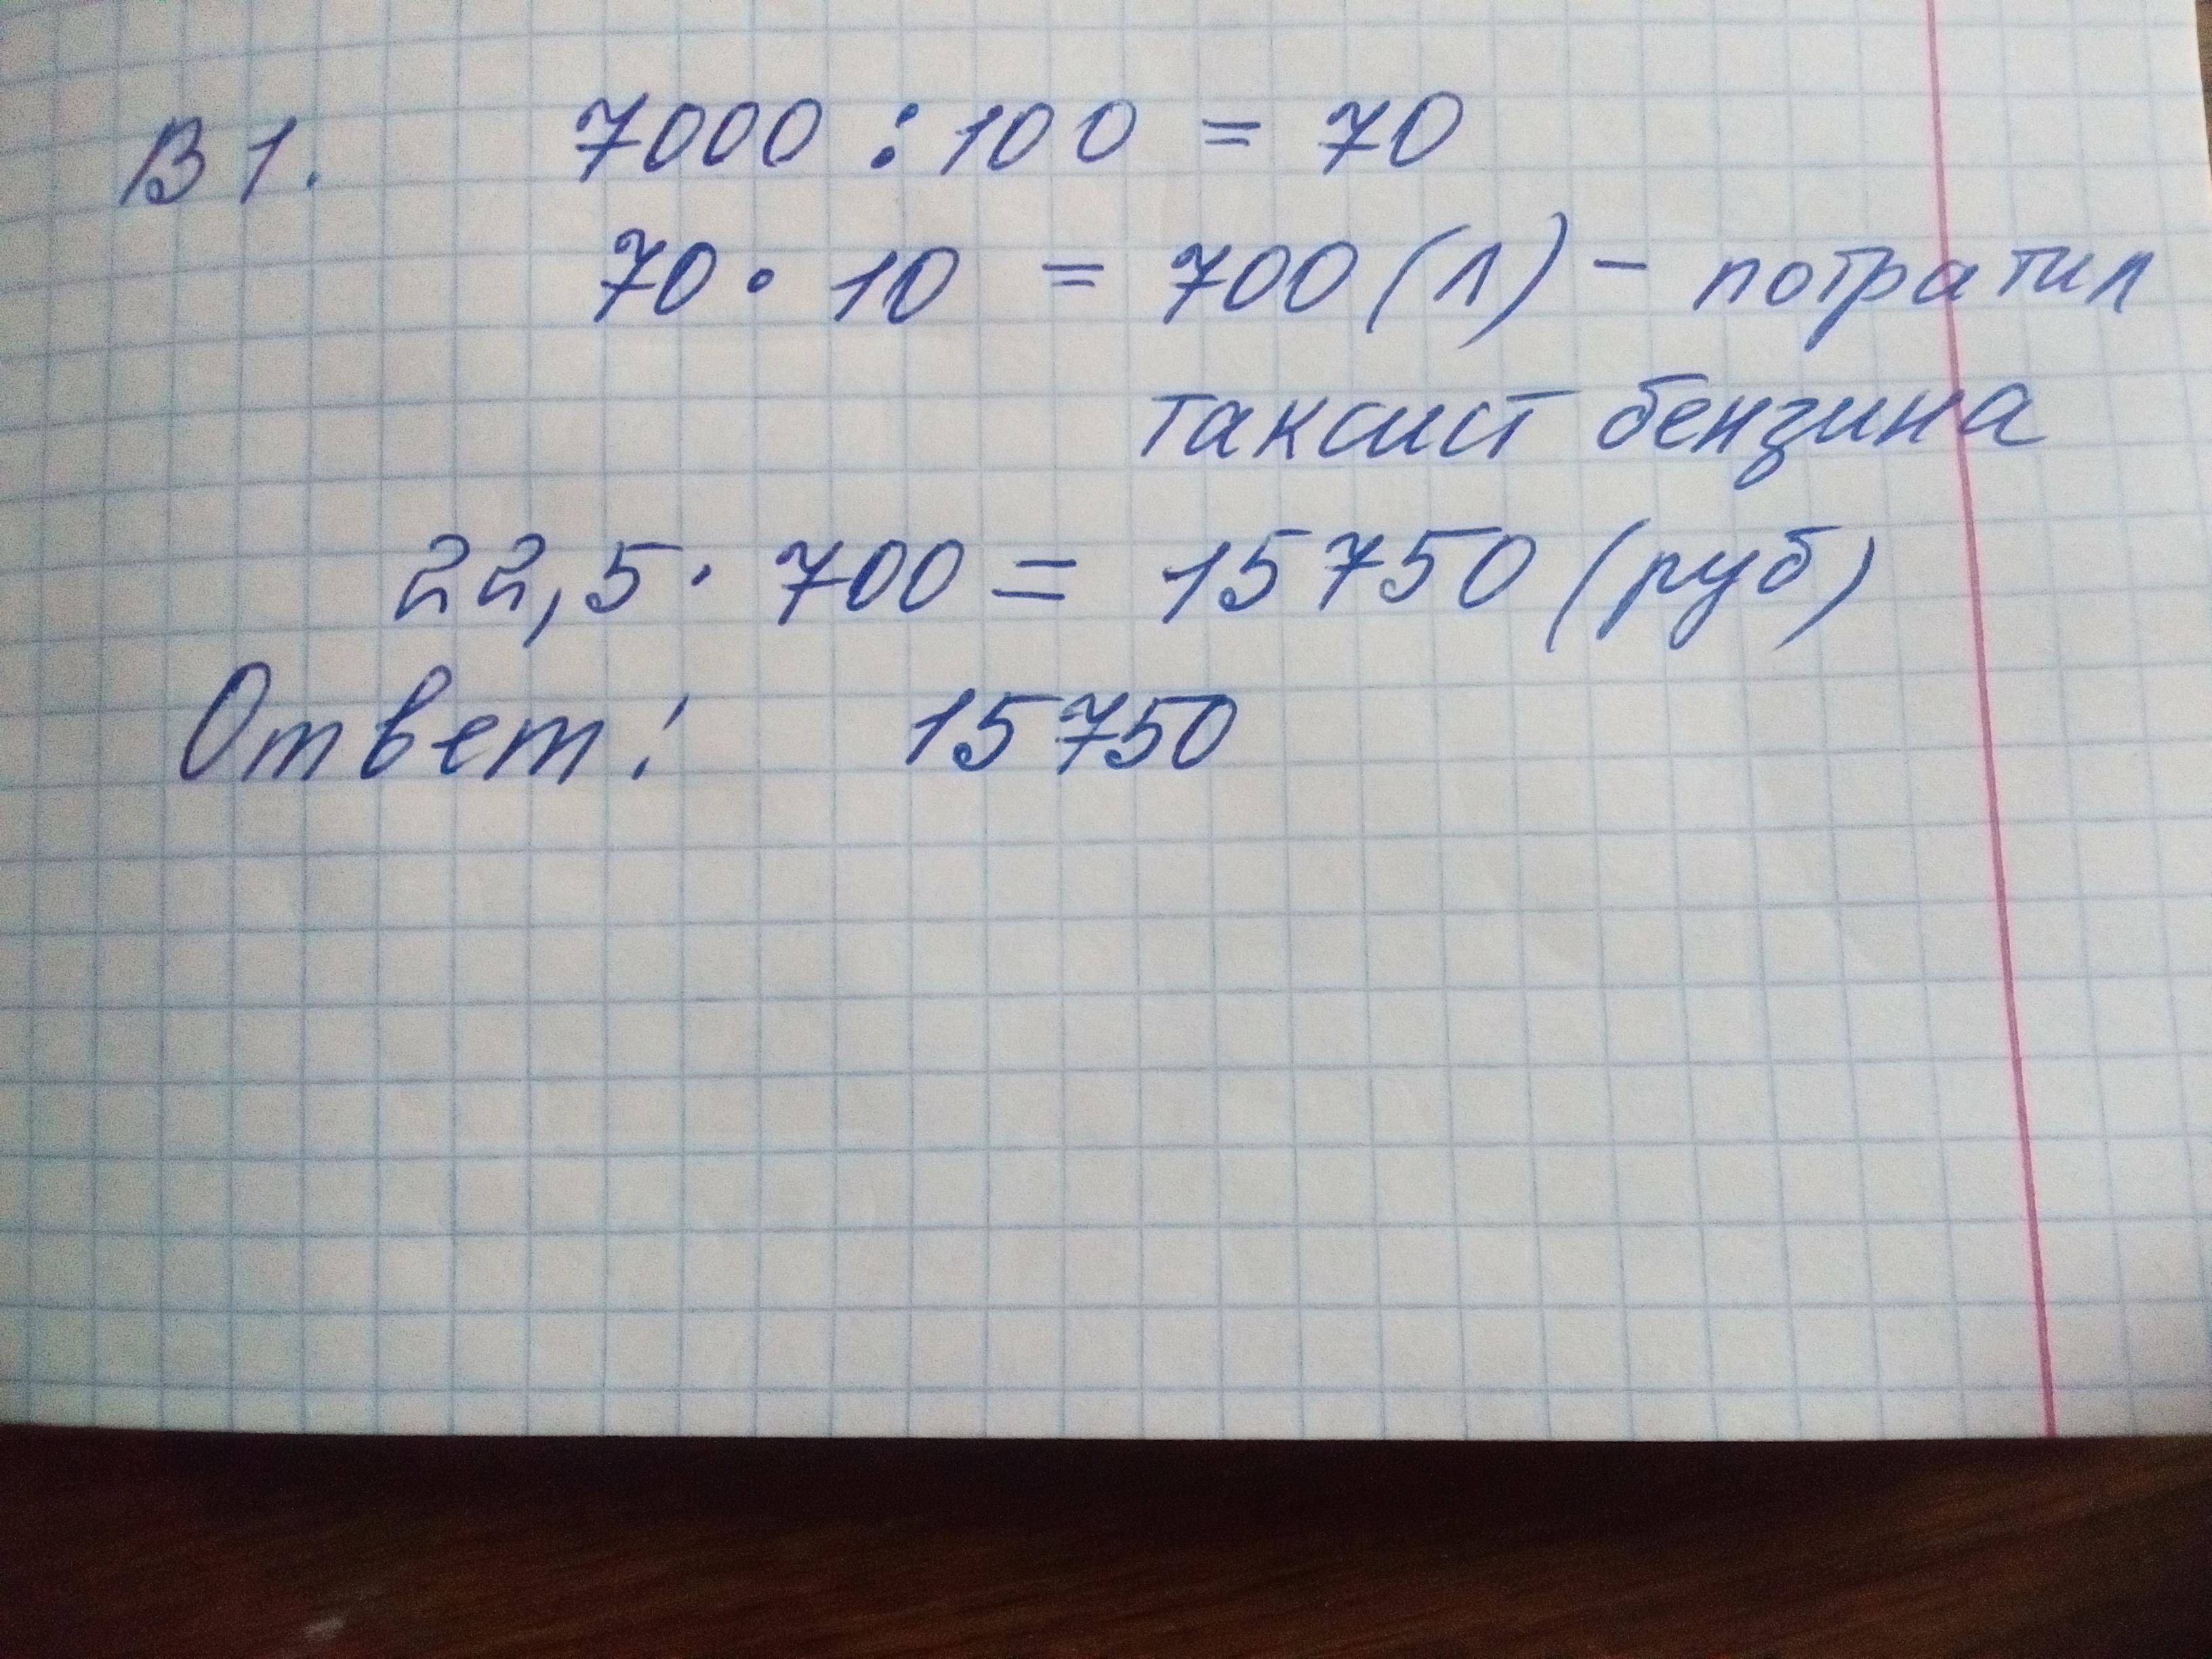 В 1. 7000 : 100 = 70
70 · 10 = 700 (л) - потратил
таксист бензина
22,5 · 700 = 15750 (руб)
Ответ: 15750